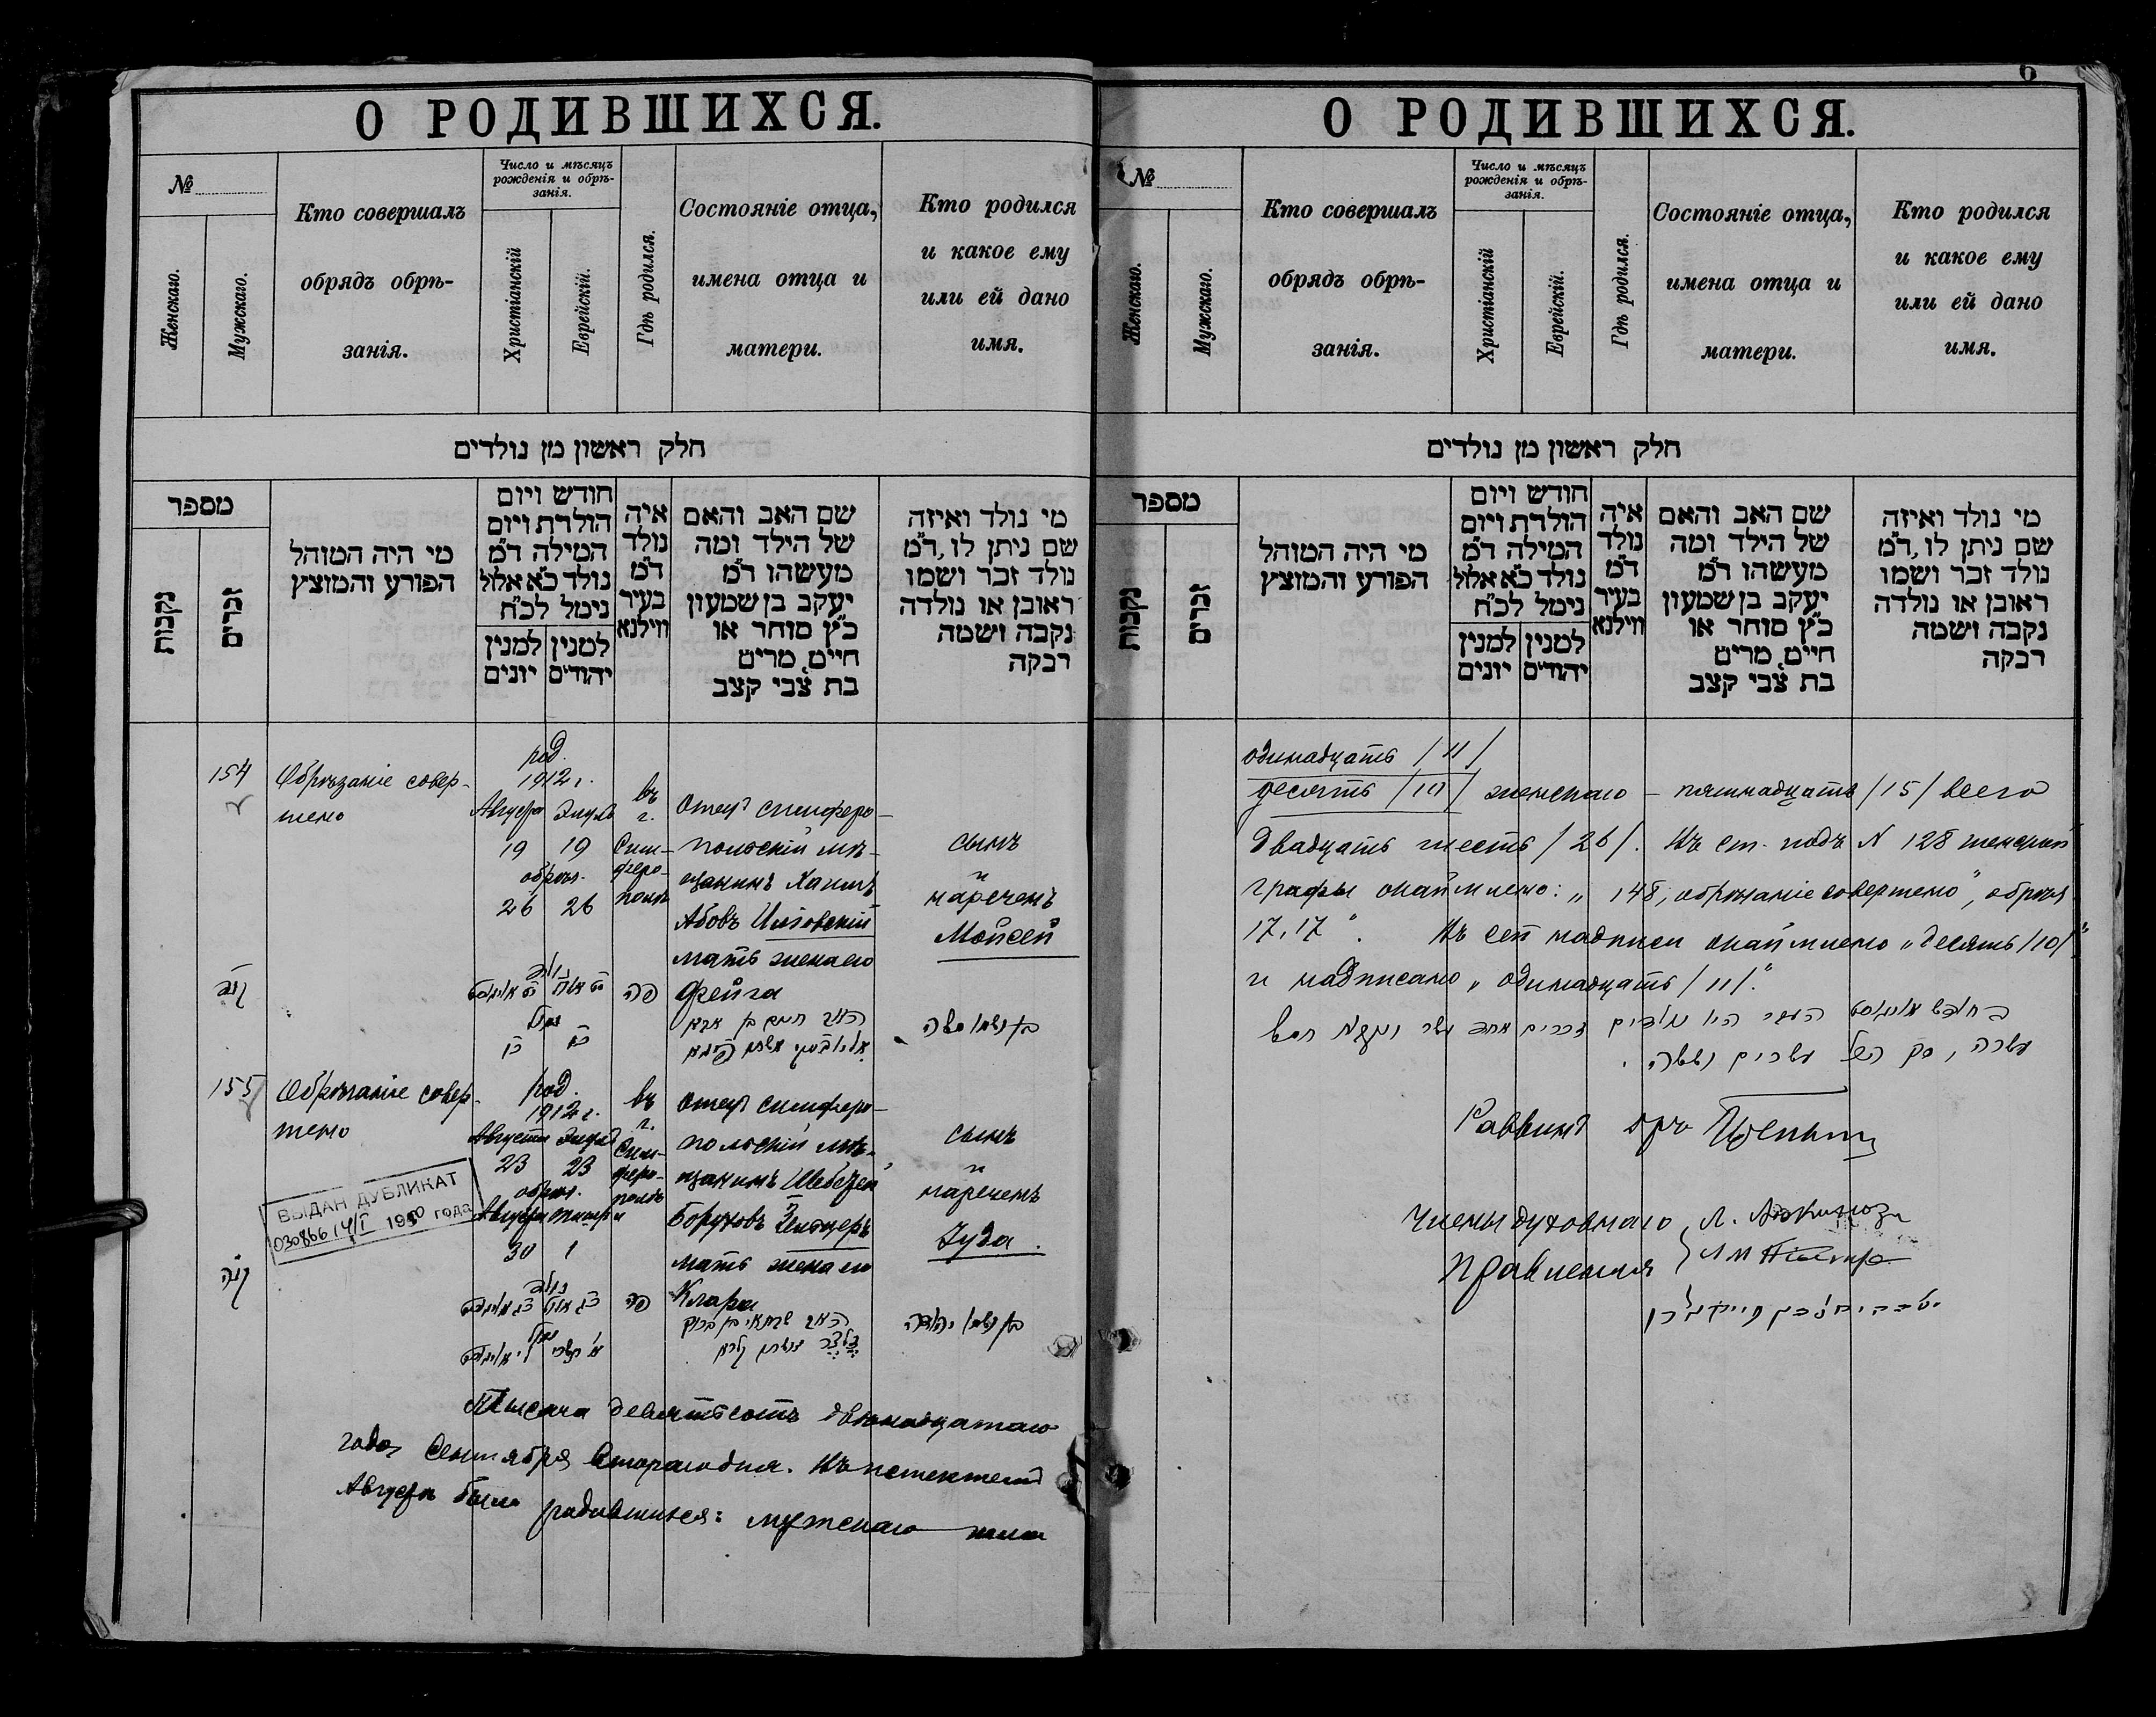 6
О РОДИВШИХСЯ.
№
Женскаго.
Мужскаго.
Кто совершалъ
обрядъ обрѣ-
занія.
Число и мѣсяцъ
рожденія и обрѣ-
занія.
Христіанскій
Еврейскій.
Гдѣ родился.
Состояніе отца,
имена отца и
матери.
Кто родился
и какое ему
или ей дано
имя.
חלק ראשון מן נולדים
מספר
נקבות
זכרים
מי היה המוהל
הפורע והמוצץ
חודש ויום
הולדת ויום
המילה ד״מ
נולד כ״א אלול
נימל לכ״ח
למנין יונים
למנין יהודים
איה
נולד
ד״מ
בעיר
ווילנא
שם האב והאם
של הילד ומה
מעשהו ד״מ
יעקב בן שמעון
כ״ץ סוחר או
חייט, מרים
בת צבי קצב
מי נולד ואיזה
שם ניתן לו, ד״מ
נולד זכר ושמו
ראובן או נולדה
נקבה ושמה
רבקה
154
Обрѣзаніе совер-
шено
род.
1912 г.
Августа Элулъ
19 19
обрѣз.
26 26
въ
г.
Сим-
феро-
поль
Отецъ симферо-
польскій мѣ-
щанинъ Хаимъ
Абовъ
мать жена его
Фейга
сынъ
и
нареченъ
Мойсей
קנד
פה
בן ושמו משה
155
Обрѣзаніе совер-
шено
род.
1912 г.
Августа Элулъ
23 23
обрѣз.
Августа Тишри
30 1
въ
г.
Сим-
феро-
поль
Отецъ симферо-
польскій мѣ-
щанинъ
Боруховъ
мать жена его
Клара
сынъ
и
нареченъ
Іуда.
קנה
פה
בן ושמו יהודה
ВЫДАН ДУБЛИКАТ
1950 года
Тысяча девятьсотъ двѣнадцатаго
года Сентября второго дня. Въ истекшемъ
Августѣ было родившихся: мужскаго пола
О РОДИВШИХСЯ.
№
Женскаго.
Мужскаго.
Кто совершалъ
обрядъ обрѣ-
занія.
Число и мѣсяцъ
рожденія и обрѣ-
занія.
Христіанскій
Еврейскій.
Гдѣ родился.
Состояніе отца,
имена отца и
матери.
Кто родился
и какое ему
или ей дано
имя.
חלק ראשון מן נולדים
מספר
נקבות
זכרים
מי היה המוהל
הפורע והמוצץ
חודש ויום
הולדת ויום
המילה ד״מ
נולד כ״א אלול
נימל לכ״ח
למנין יונים
למנין יהודים
איה
נולד
ד״מ
בעיר
ווילנא
שם האב והאם
של הילד ומה
מעשהו ד״מ
יעקב בן שמעון
כ״ץ סוחר או
חייט, מרים
בת צבי קצב
מי נולד ואיזה
שם ניתן לו, ד״מ
נולד זכר ושמו
ראובן או נולדה
נקבה ושמה
רבקה
одинадцать /11/
десять /10/ женскаго – пятнадцать /15/ всего
двадцать шесть /26/. Въ ст. подъ N 128 женской
графы : „148, обрѣзаніе совершено", обрѣз.
17, 17". Въ сей надписи „десять /10/"
и надписано „одинадцать /11/."
עשרה, סך הכל עשרים וששה.
Раввинъ
Члены духовнаго
Правленія